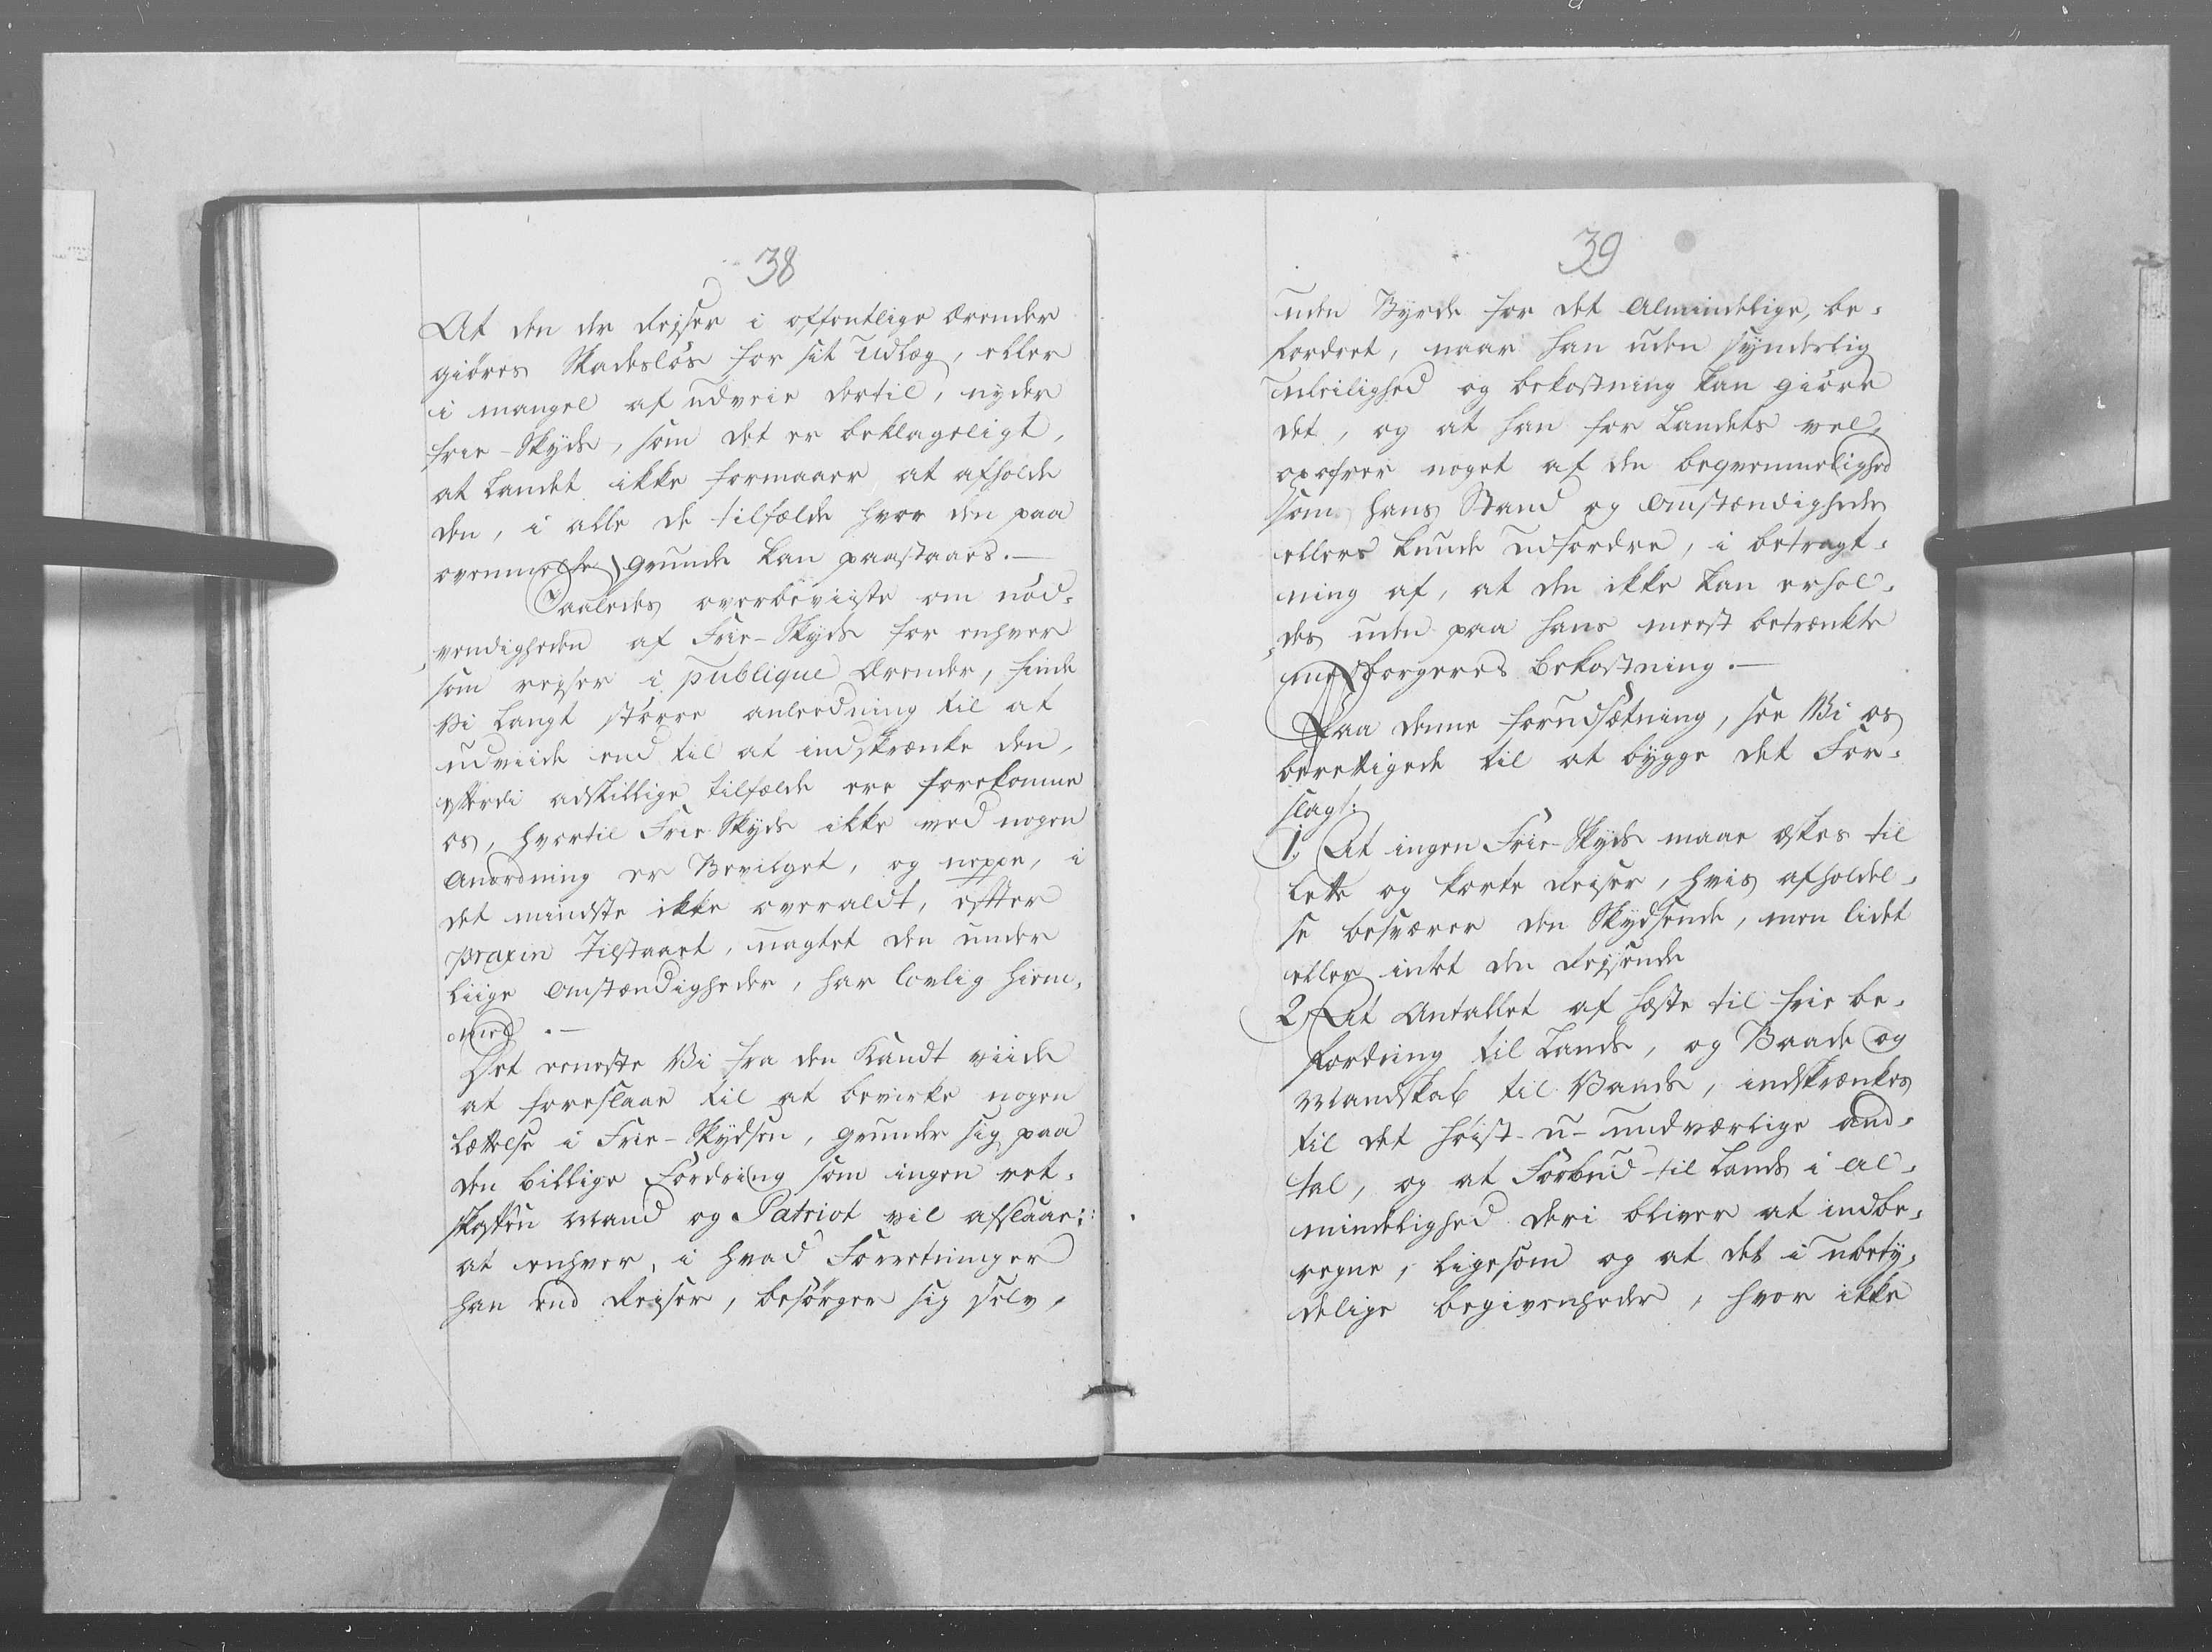 38
At den der Rejser i offentlige Ærender
giöres Skadeslös for sit Udlæg, eller
i mangel af udveie dertil, nyder
frie-Skyds, som det er beklageligt,
at Landet ikke formaaer at afholde
den, i alle de tilfælde hvor den paa
ovenmelte grunde kan paastaaes.—
Saaledes overbeviiste om nöd-
vendigheden af Frie-Skyds for enhver
som rejser i publique Ærender, finde
Vi langt större anleedning til at
udviide end til at indskrænke den,
efterdi adskillige tilfælde ere forekomne
os, hvortil Frie Skyds ikke ved nogen
Anordning er Bevilget, og neppe, i
det mindste ikke overaldt, efter
praxin Tilstaaet, uagtet den under
liige Omstændigheder, har lovlig hiem-
med.—
Det eeneste Vi fra den Kandt viide
at foreslaae til at bevirke nogen
Lættelse i Frie-Skydsen, grunder sig paa
den billige Fordring som ingen ret-
skaffen Mand og Patriot vil afslaae:
at enhver, i hvad Forretninger
han end Rejser, besörger sig selv,
39
uden Byrde for det Almindelige, be-
fordret, naar han uden synderlig
uleilighed og bekostning kan giöre
det, og at han for Landets vel,
opofrer noget af den beqvemmelighed
som hans Stand og Omstændigheder
ellers kunde udfordre, i betragt-
ning af, at den ikke kan erhol-
des uden paa hans meest betrænkte
medborgeres bekostning.—
Paa denne forudsætning, see Vi os
berettigede til at bygge det For-
slag:
1, At ingen Frie-Skyds maae æskes til
lette og korte Reiser, hvis afholdel-
se besværer den Skydsende, men lidet
eller intet den Rejsende
2, At Antallet af Hæste til frie be-
fordring til Lands, og Baade og
Mandskab til Vands, indskrænkes
til det höist-u-undværlige and-
tal, og at Forbud til Lands i Al-
mindelighed deri bliver at indbe-
regne, ligesom og at det i ubety-
delige begivenheder, hvor ikke